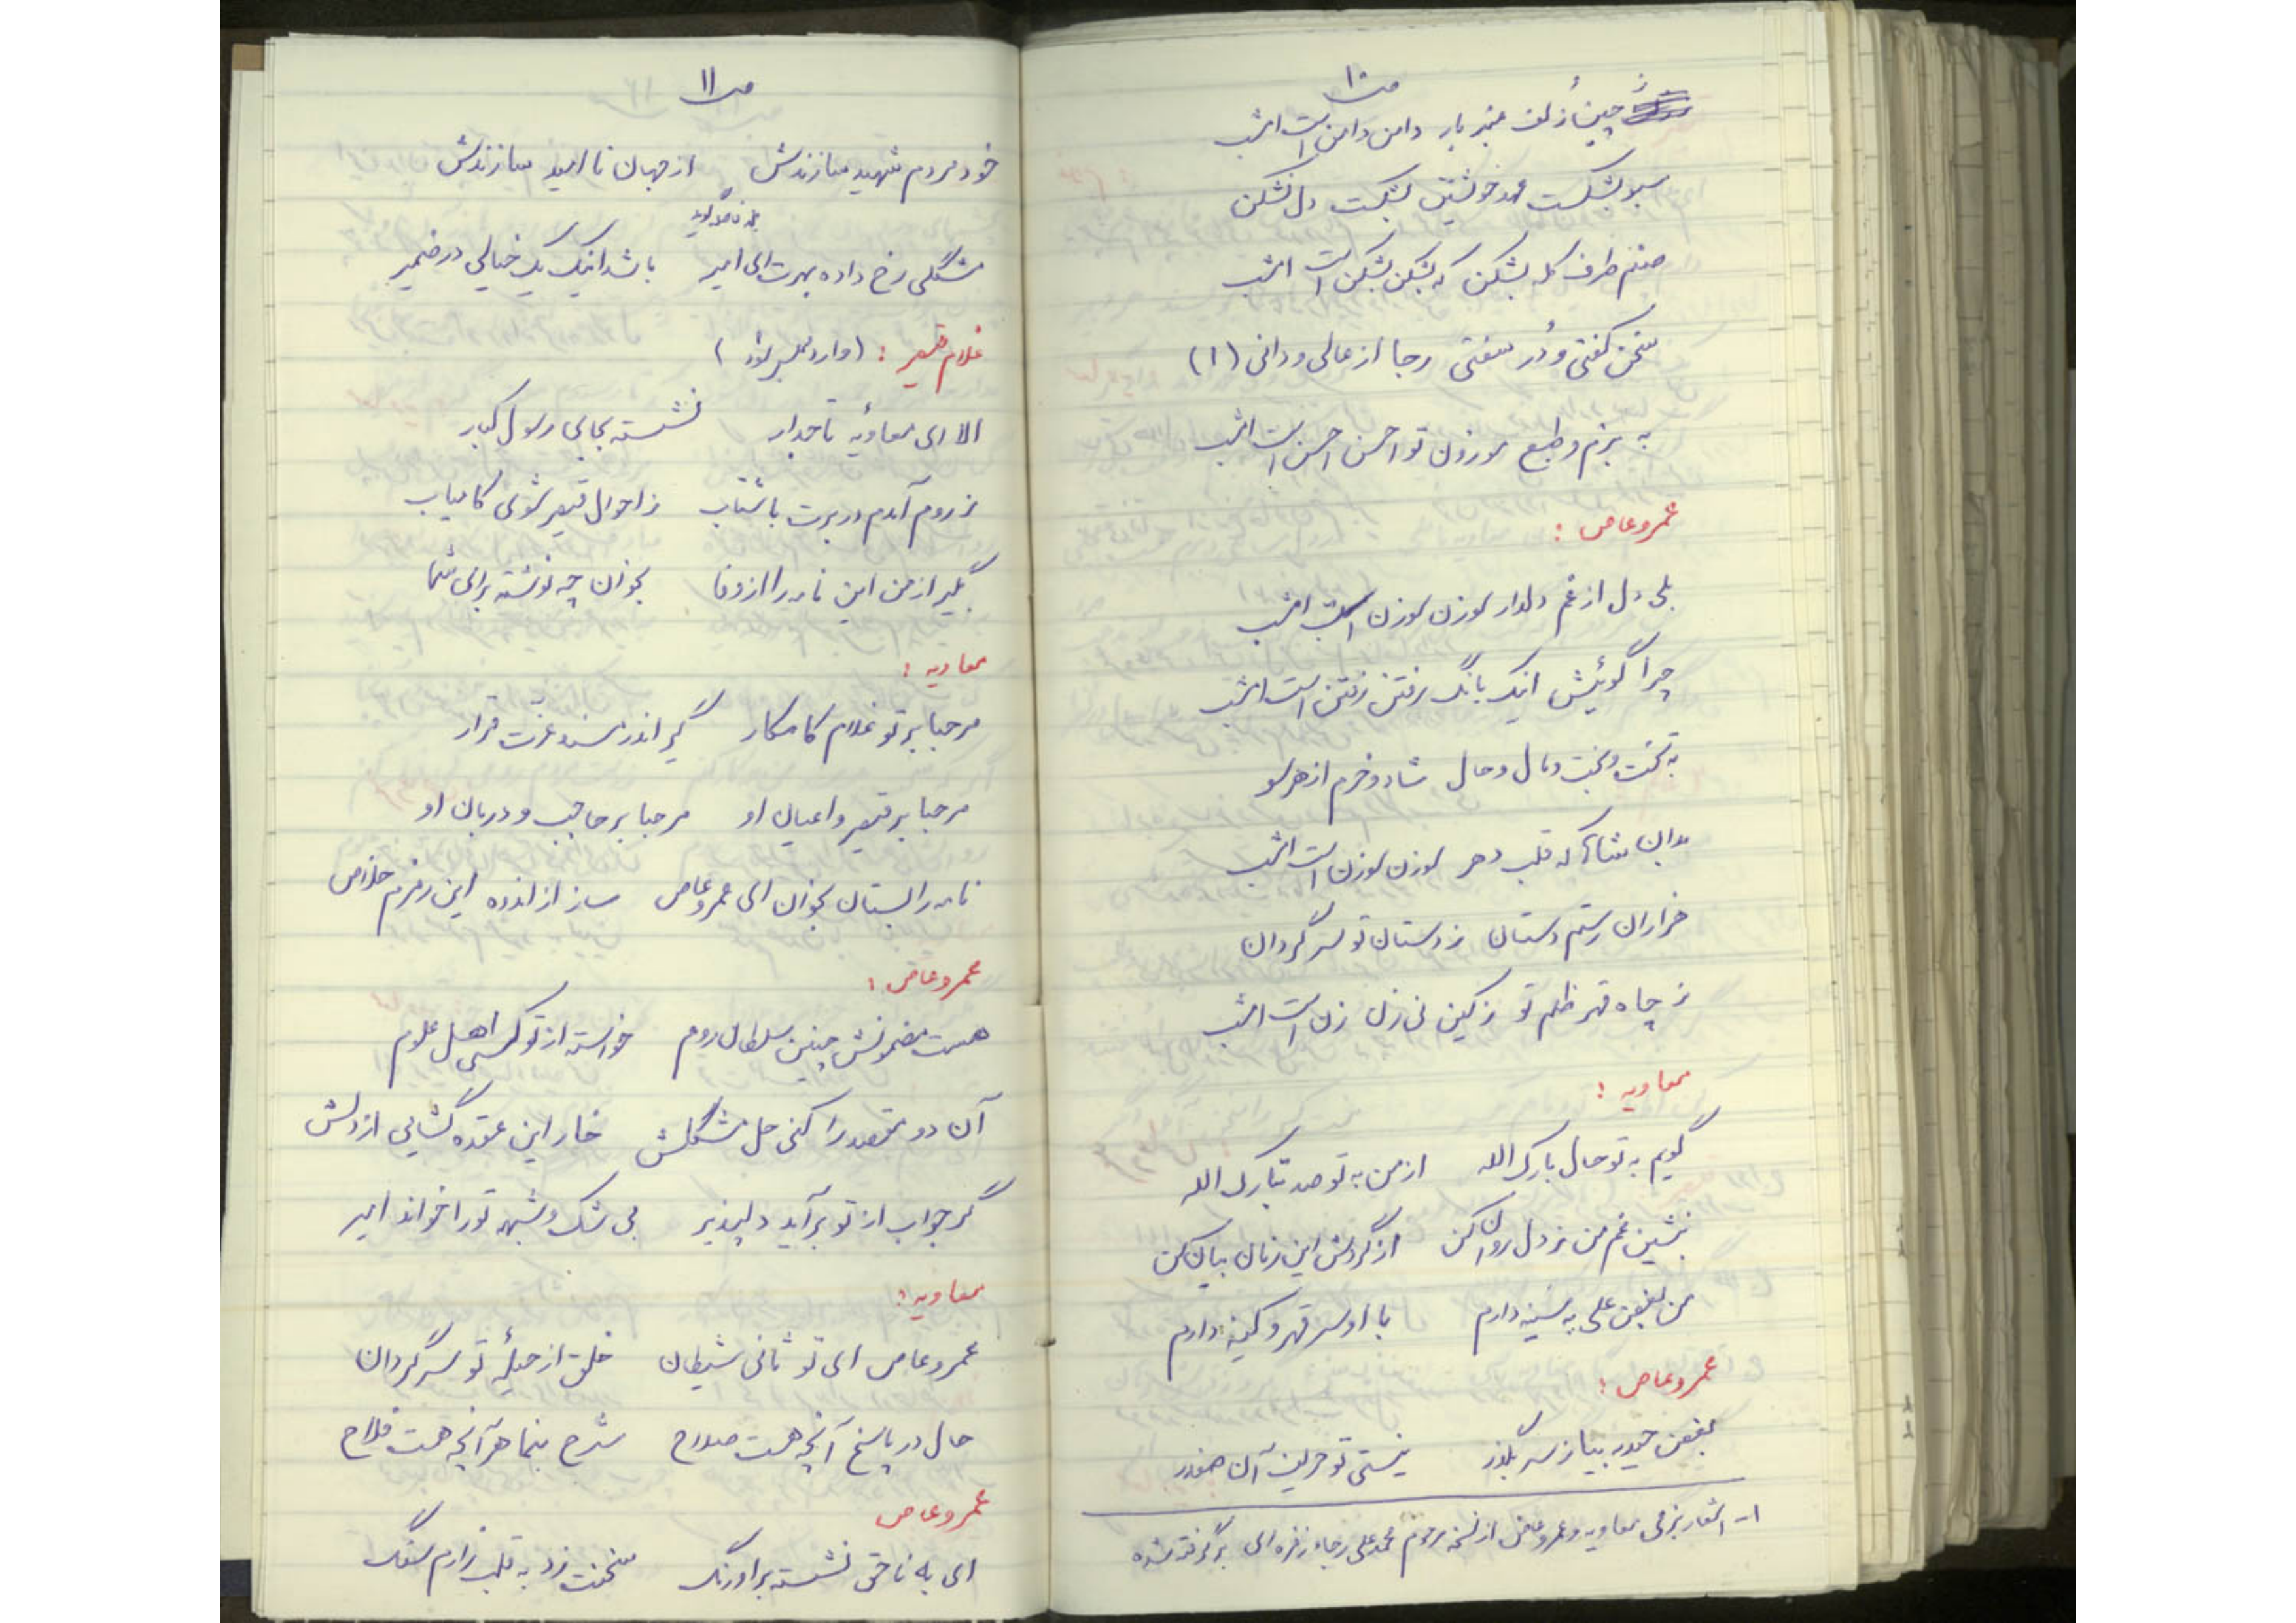 ص ۱۰
چین زلف عنبر بار دامن دامن است امشب
سبو بشکست عهد خویشتن بشکست دل نشکن
صنم طرف کله بشکن که بشکن بشکن است امشب
سخن گفتی و دُر سفتی رجا از عالی و دانی (۱)
به بزم و طبع موزون تو احسن احسن است امشب
عمروعاص :
بلی دل از غم دلدار لوزن لوزن است امشب
چرا گوئیش اینک بانگ رفتن رفتن است امشب
به تخت و بخت و مال و حال شاد و خرم از هر سو
بدان شاها که قلب دهر لوزن لوزن است امشب
هزاران رستم دستان ز دستان تو سرگردان
ز چاه قهر ظلم تو ز کین نی زن زن است امشب
معاویه :
گویم به تو حال بارک الله از من به تو صد تبارک الله
بنشین غم من ز دل روان کن از گردش این زمان بیان کن
من بغض علی به سینه دارم با او سر قهر و کینه دارم
عمروعاص :
بغض حیدر بیا ز سر بگذر نیستی تو حریف آن صفدر
۱- اشعار بزمی معاویه و عمروعاص از نسخه مرحوم محمدعلی رجاء زفره ای برگرفته شده
ص ۱۱
خود مردم شهید سازندش از جهان ناامید سازندش
مشکلی رخ داده بهرت ای امیر باشد اینک یک خیالی در ضمیر
غلام قیصر : (وارد مجلس شود)
الا ای معاویهٔ تاجدار نشسته بجای رسول کبار
ز روم آمدم در برت با شتاب ز احوال قیصر شوی کامیاب
بگیر از من این نامه را از وفا بخوان چه نوشته برای شما
معاویه :
مرحبا بر تو غلام کامکار گیر اندر مسند عزت قرار
مرحبا بر قیصر و اعیان او مرحبا بر حاجب و دربان او
نامه را بستان بخوان ای عمروعاص ساز از اندوه این رمزم خلاص
عمروعاص :
هست مضمونش چنین سلطان روم خواسته از تو کسی اهل علوم
آن دو مقصد را کنی حل مشکلش خار این عقده گشایی از دلش
گر جواب از تو برآید دلپذیر بی شک و شبهه تو را خواند امیر
معاویه :
عمروعاص ای تو ثانی شیطان خلق از حیلهٔ تو سرگردان
حال در پاسخ آنچه هست صلاح شرح بنما هر آنچه هست فلاح
عمروعاص
ای به ناحق نشسته بر اورنگ سخنت زد به قلب زارم سنگ